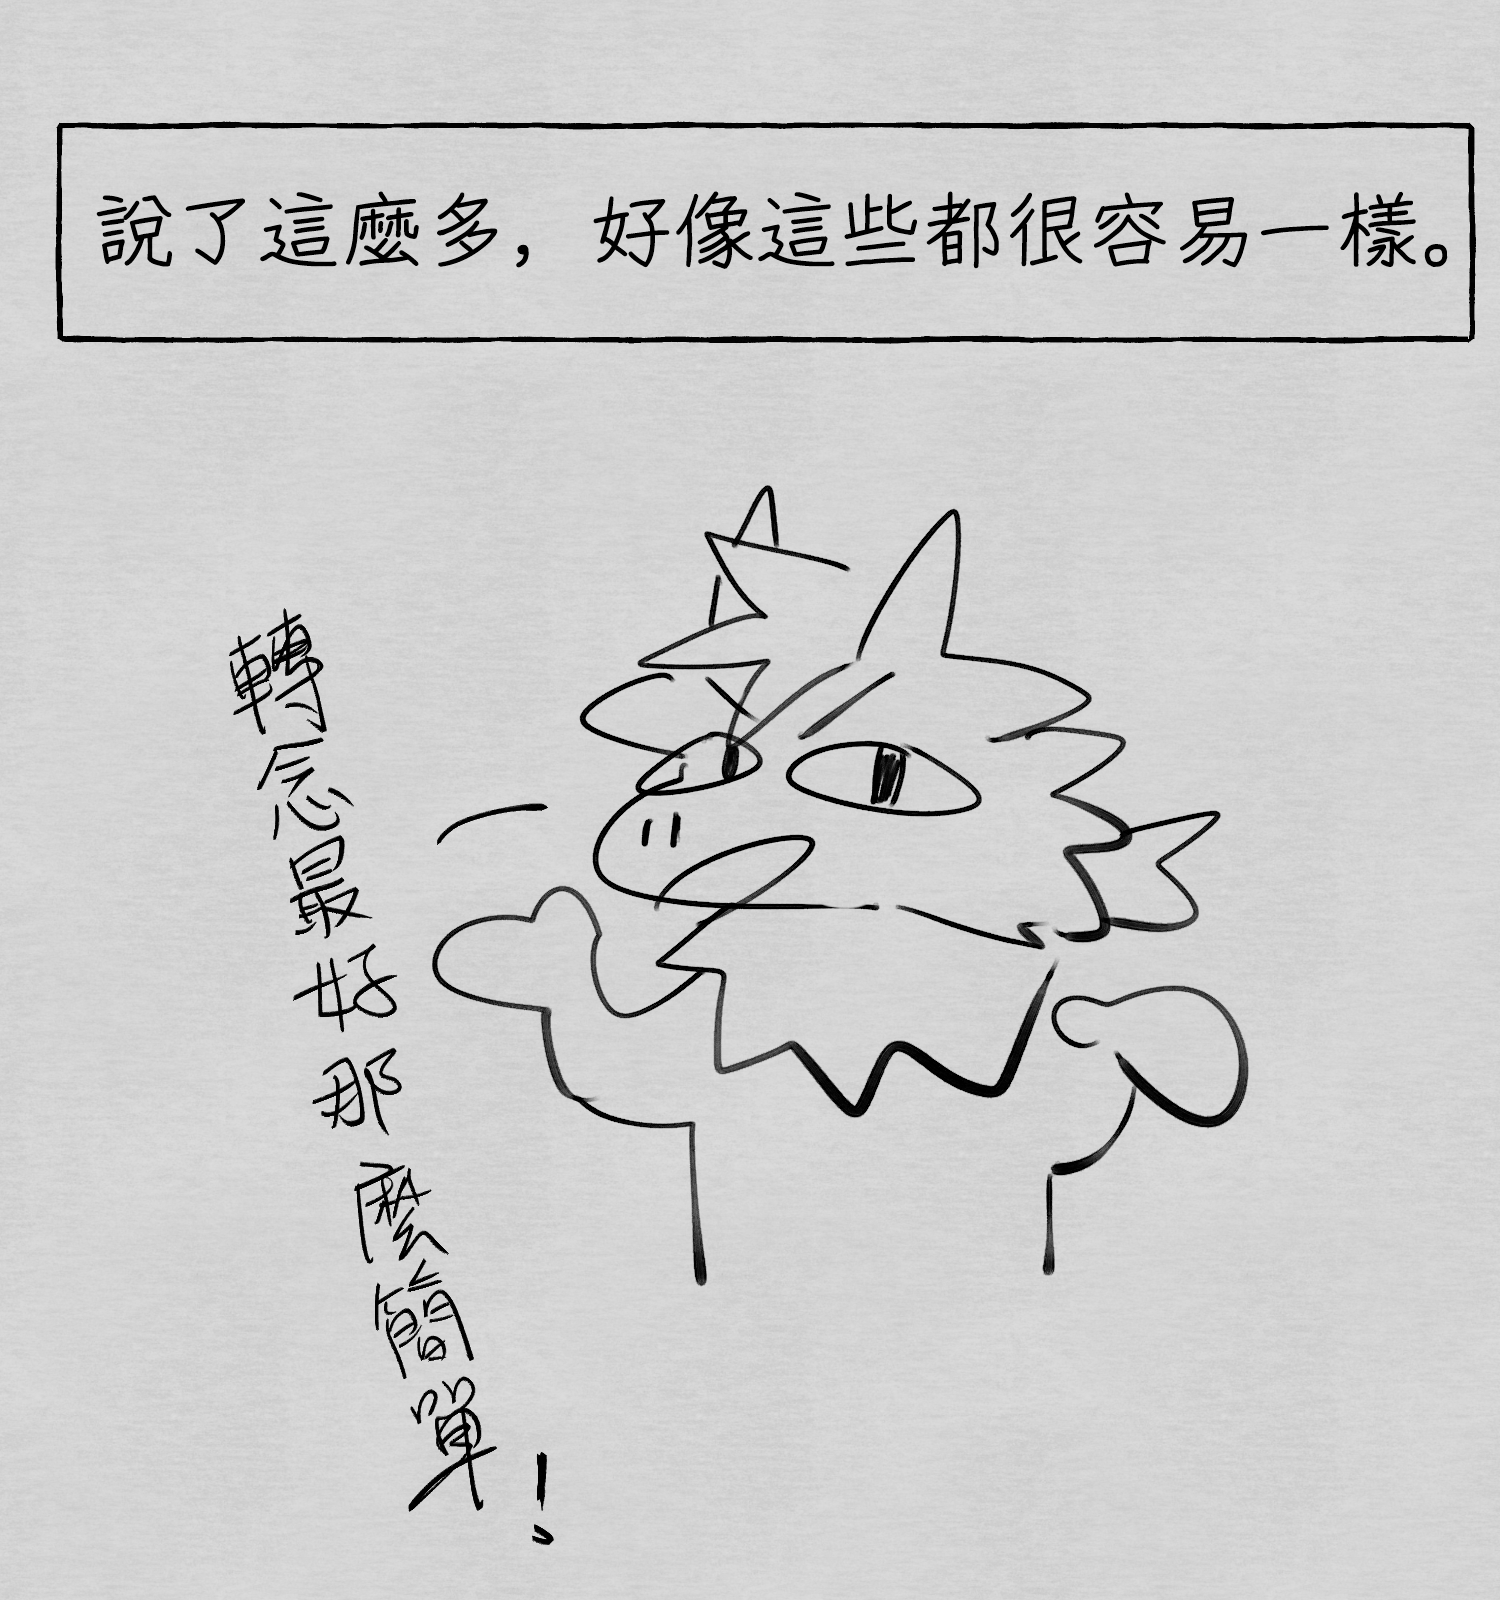 說了這麼多，好像這些都很容易一樣。
轉念最好那麼簡單！